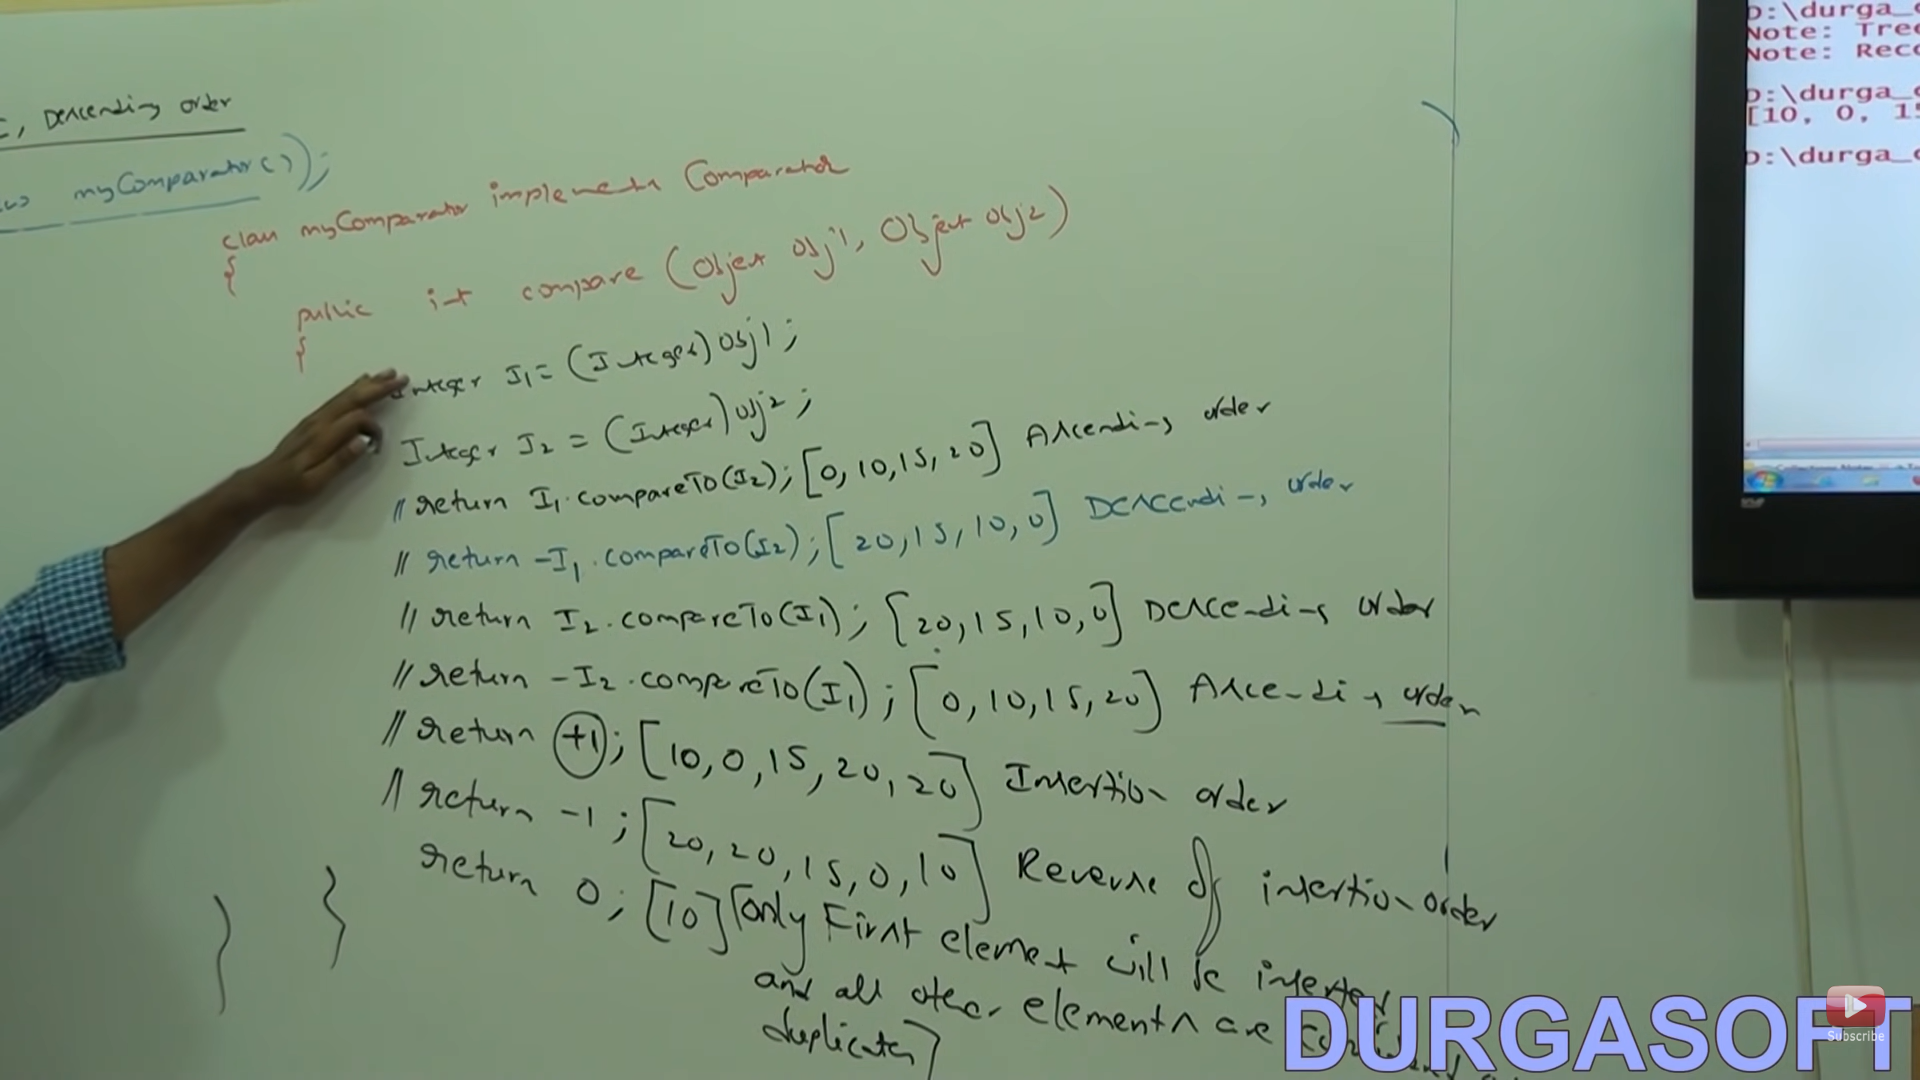 Descending order
myComparator());
class myComparator implements Comparator
{
public int compare (Object obj1, Object obj2)
{
Integer I1 = (Integer) obj1;
Integer I2 = (Integer) obj2;
// return I1.compareTo(I2); [0, 10, 15, 20] Ascending order
// return -I1.compareTo(I2); [20, 15, 10, 0] Descending order
// return I2.compareTo(I1); [20, 15, 10, 0] Descending order
// return -I2.compareTo(I1); [0, 10, 15, 20] Ascending order
// return +1; [10, 0, 15, 20, 20] Insertion order
// return -1; [20, 20, 15, 0, 10] Reverse of insertion order
return 0; [10] [only First element will be inserted
and all other elements are considered
duplicates]
}
}
D:\durga_
Note: Tree
Note: Reco
D:\durga_
[10, 0, 15
D:\durga_
DURGASOFT
Subscribe